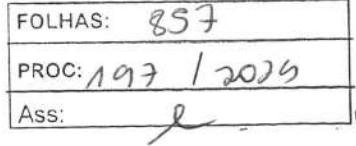 FOLHAS: 857
PROC: 197 / 2025
Ass: